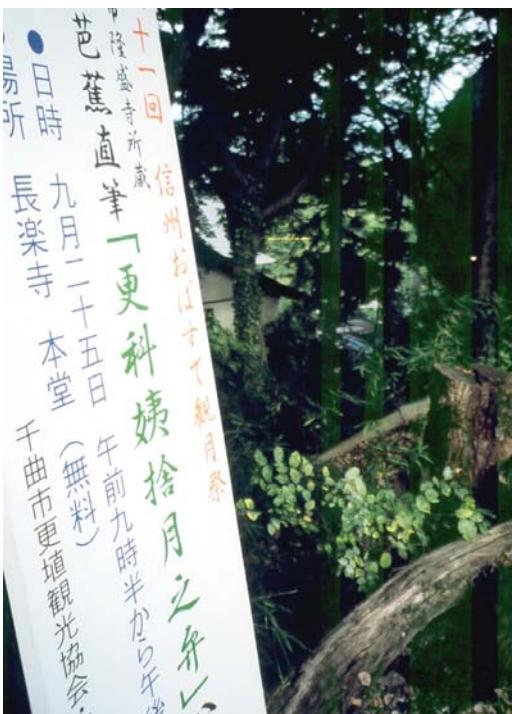 十一回 信州おばすて観月祭
市隆盛寺所蔵
芭蕉直筆「更科姨捨月之弁」
●日時 九月二十五日 午前九時半から午後
場所 長楽寺 本堂 (無料)
千曲市更埴観光協会・